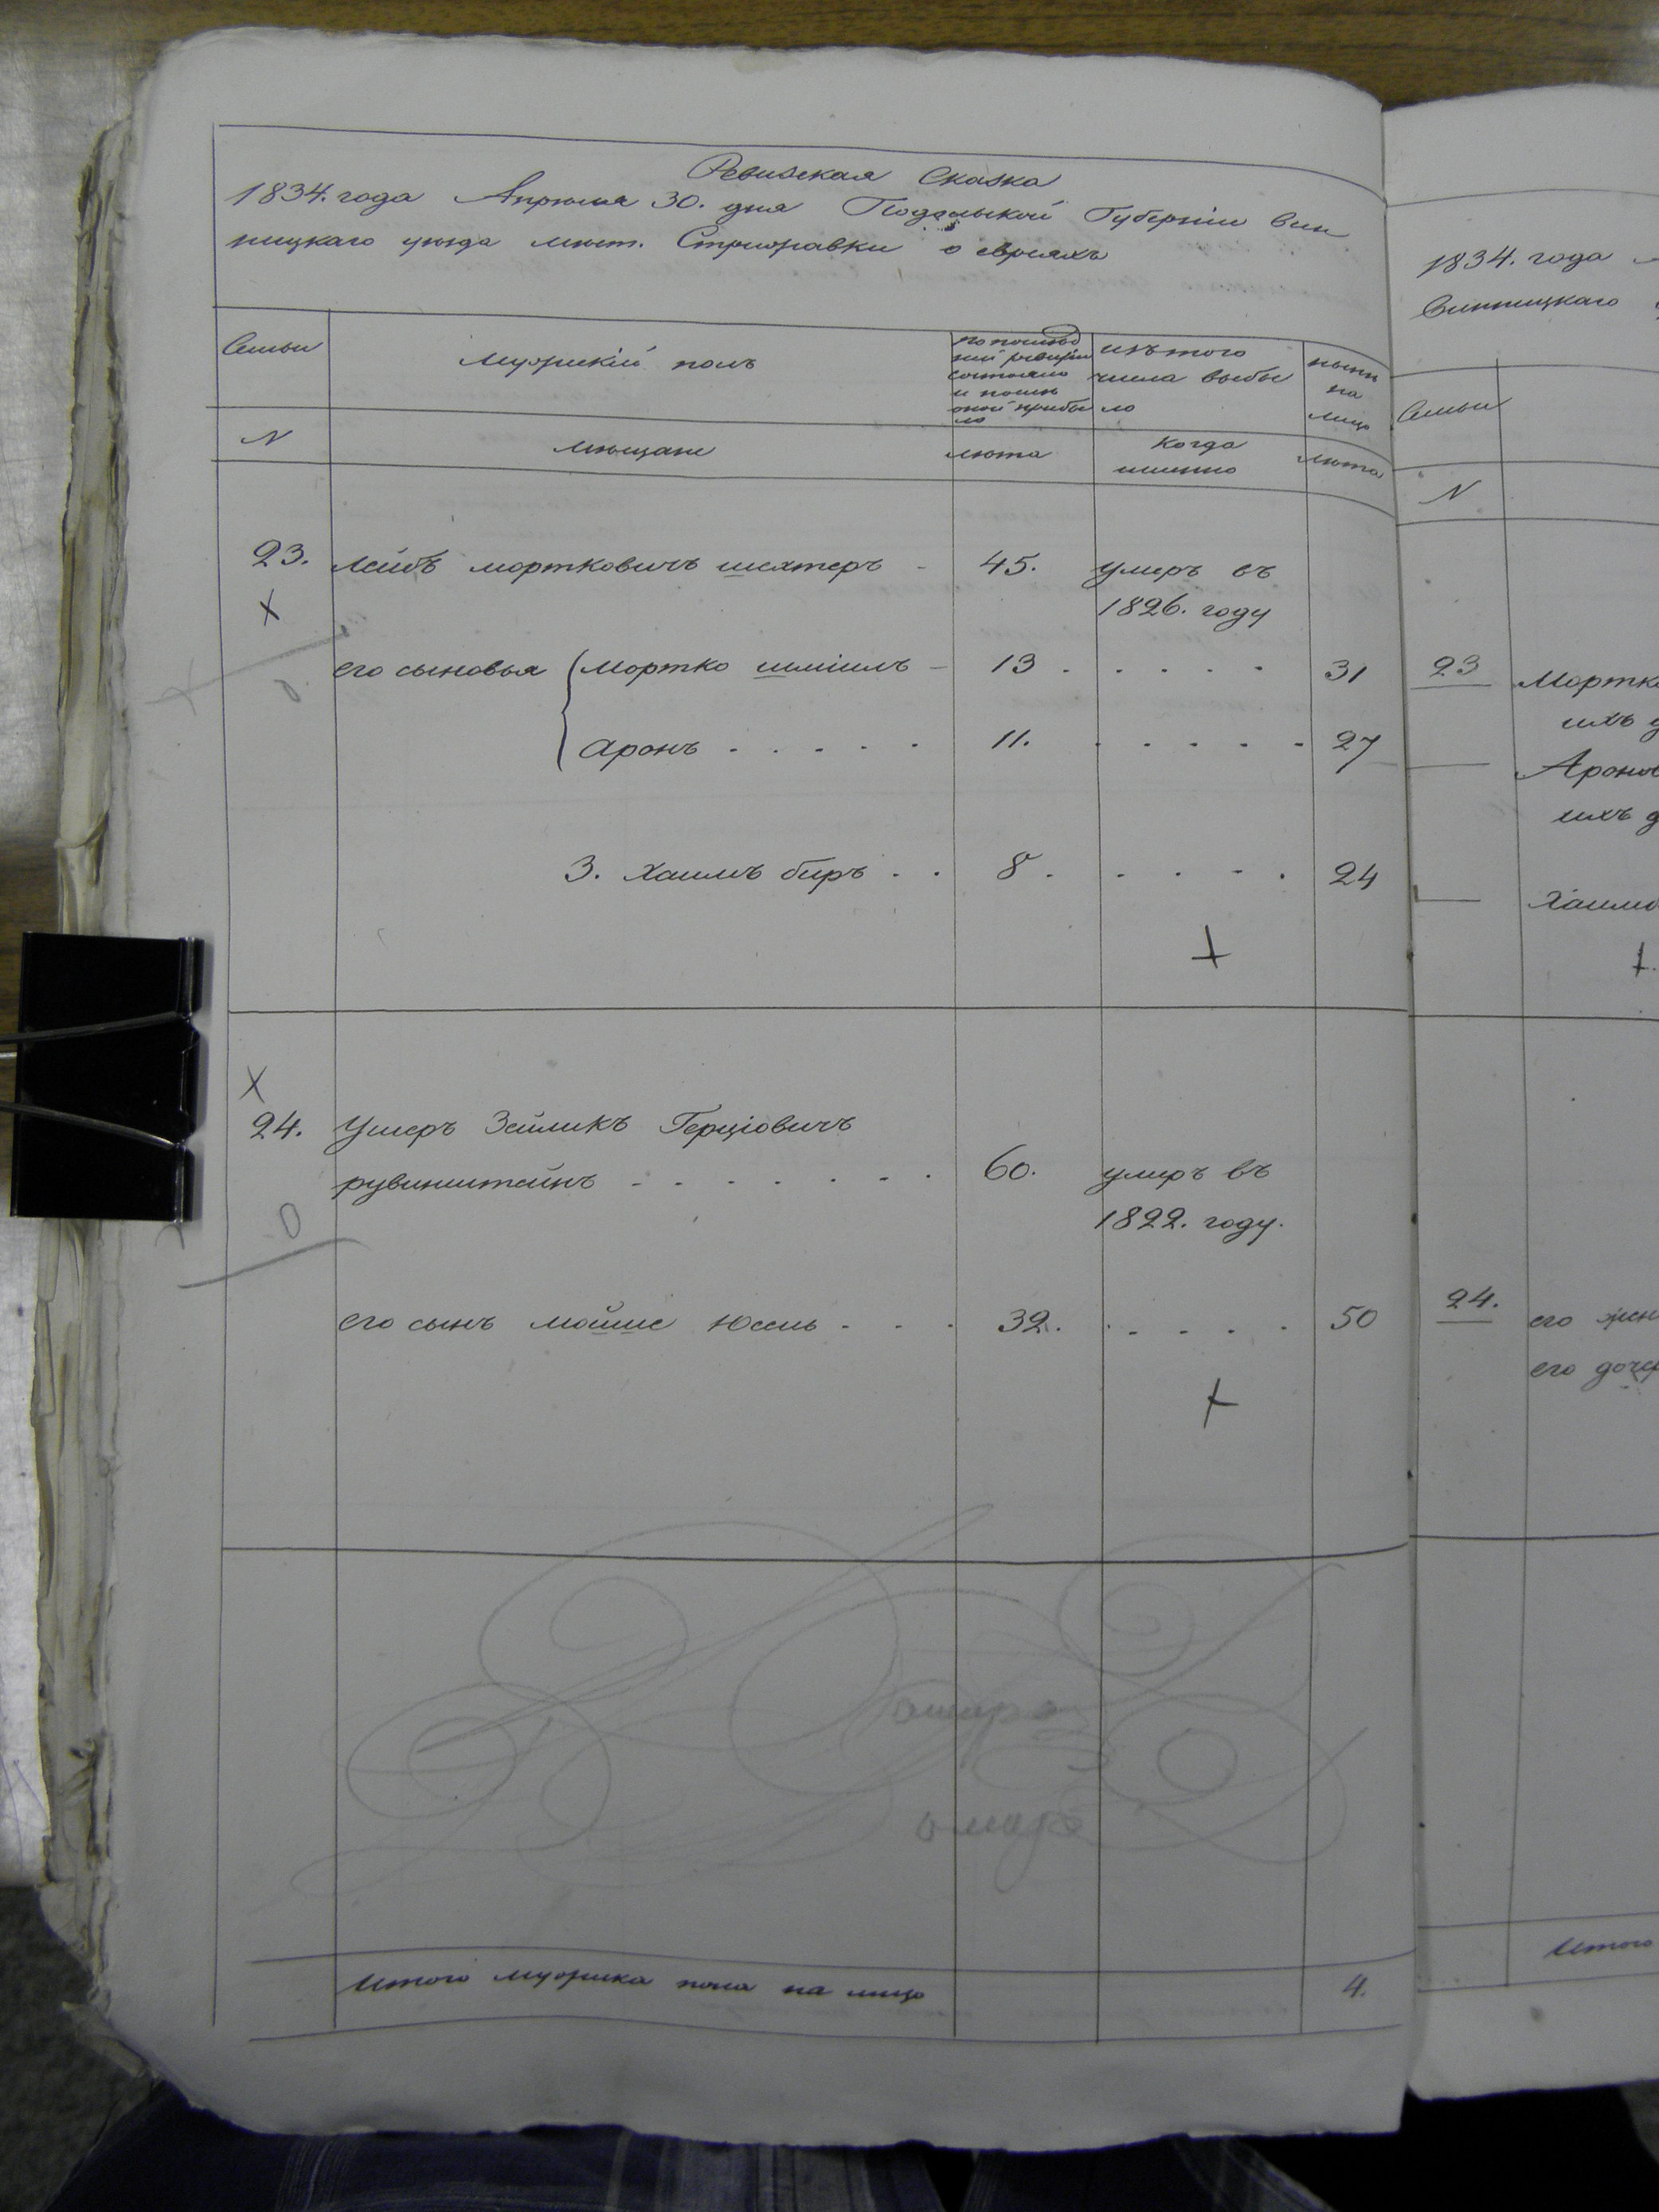 Ревизская Сказка
1834. года Апреля 30. дня Подольской Губерніи Вин
ницкаго уезда мест. Стрижавки о евреяхъ
Семьи
Мужескій полъ
по послед
ней ревизіи
состояло
и после
оной прибы
ло
изъ того
числа выбы
ло
ныне
на
лицо
N
мещане
лета
когда
именно
лета
23. Лейбъ мортковичъ шехтеръ - 45. умеръ въ
1826. году
его сыновья Мортко шміилъ - 13 . . . . . 31
Аронъ . . . . . 11. . . . . . 27
3. Хаимъ беръ . . 8 . . . . . 24
24. Ушеръ Зейликъ Герціовичъ
рувинштейнъ - - - . . . . 60. умеръ въ
1822. году.
его сынъ мойше Юсепь - - . 32. . . . . . 50
Итого мужеска пола на лицо 4.
1834. года
Винницкаго
Семьи
N
23 Мортк
ихъ д
Аронов
ихъ д
Хаимо
24. его жен
его доч
Итого